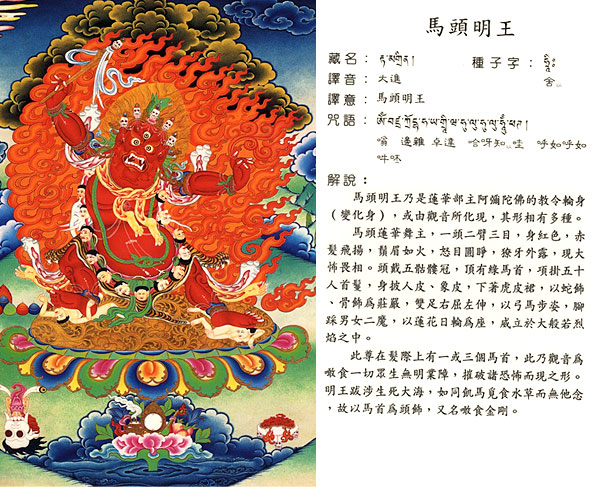 馬頭明王
藏名：རྟ་མགྲིན། 種子字：ཧྲཱིཿ
譯音：大進 舍
譯意：馬頭明王
咒語：ཨོཾ་བཛྲ་ཀྲོ་དྷ་ཧ་ཡ་གྲཱི་ཝ་ཧུ་ལུ་ཧུ་ལུ་ཧཱུྃ་ཕཊ།
嗡 邊雜 卓達 哈呀知 哇 呼如呼如
吽呸
解說：
馬頭明王乃是蓮華部主阿彌陀佛的教令輪身
（變化身），或由觀音所化現，其形相有多種。
馬頭蓮華舞主，一頭二臂三目，身紅色，赤
髮飛揚，鬚眉如火，怒目圓睜，獠牙外露，現大
怖畏相。頭戴五骷髏冠，頂有綠馬首，項掛五十
人首鬘，身披人皮、象皮，下著虎皮裙，以蛇飾
、骨飾為莊嚴，雙足右屈左伸，以弓馬步姿，腳
踩男女二魔，以蓮花日輪為座，威立於大般若烈
焰之中。
此尊在髮際上有一或三個馬首，此乃觀音為
噉食一切眾生無明業障，摧破諸恐怖而現之形。
明王跋涉生死大海，如同飢馬覓食水草而無他念
，故以馬首為頭飾，又名噉食金剛。